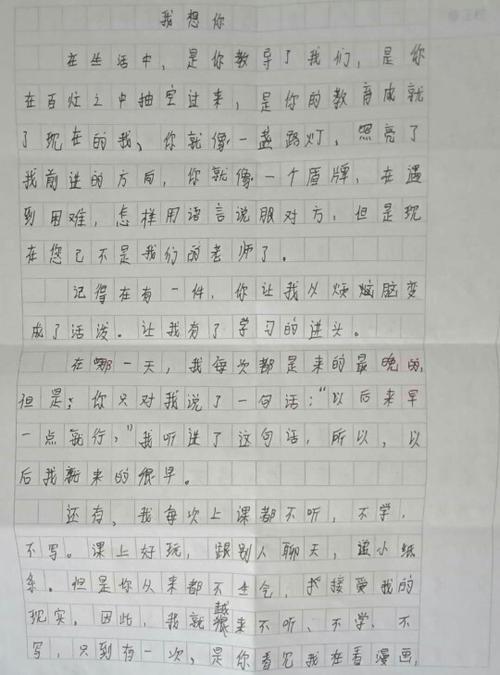 我想你
在生活中，是你教导了我们，是你
在百忙之中抽空过来，是你的教育成就
了现在的我、你就像一盏路灯，照亮了
我前进的方向，你就像一个盾牌，在遇
到困难，怎样用语言说服对方，但是现
在您已不是我们的老师了。
记得在有一件，你让我从烦恼脑变
成了活泼。让我有了学习的进头。
在哪一天，我每次都是来的最晚的，
但是；你只对我说了一句话：“以后来早
一点就行，”我听进了这句话，所以，以
后我就来的很早。
还有、我每次上课都不听，不学，
不写。课上好玩，跟别人聊天，递小纸
条。但是你从来都不生气，接受我的
现实。因此，我就越来不听、不学、不
写，只到有一次，是你看见我在看漫画，